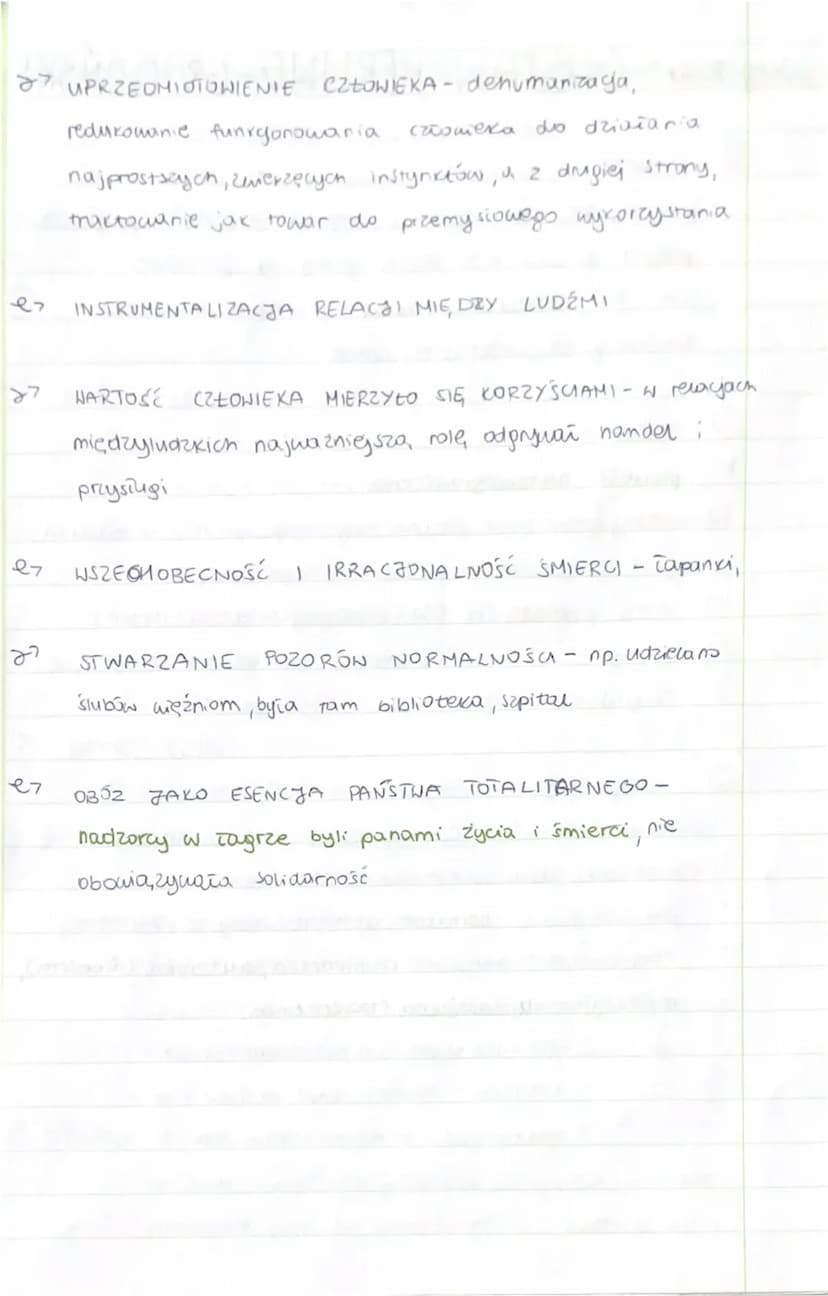 UPRZEDMIOTOWIENIE CZŁOWIEKA - dehumanizacja,
redukowanie funkcjonowania człowieka do działania
najprostszych, zwierzęcych instynktów, a z drugiej strony,
traktowanie jak towar do przemysłowego wykorzystania
INSTRUMENTALIZACJA RELACJI MIĘDZY LUDŹMI
WARTOŚĆ CZŁOWIEKA MIERZYŁO SIĘ KORZYŚCIAMI - w relacjach
międzyludzkich najważniejszą rolę odgrywał handel i
przysługi
WSZECHOBECNOŚĆ I IRRACJONALNOŚĆ ŚMIERCI - łapanki,
STWARZANIE POZORÓW NORMALNOŚCI - np. udzielano
ślubów więźniom, była tam biblioteka, szpital
OBÓZ JAKO ESENCJA PAŃSTWA TOTALITARNEGO -
nadzorcy w łagrze byli panami życia i śmierci, nie
obowiązywała solidarność